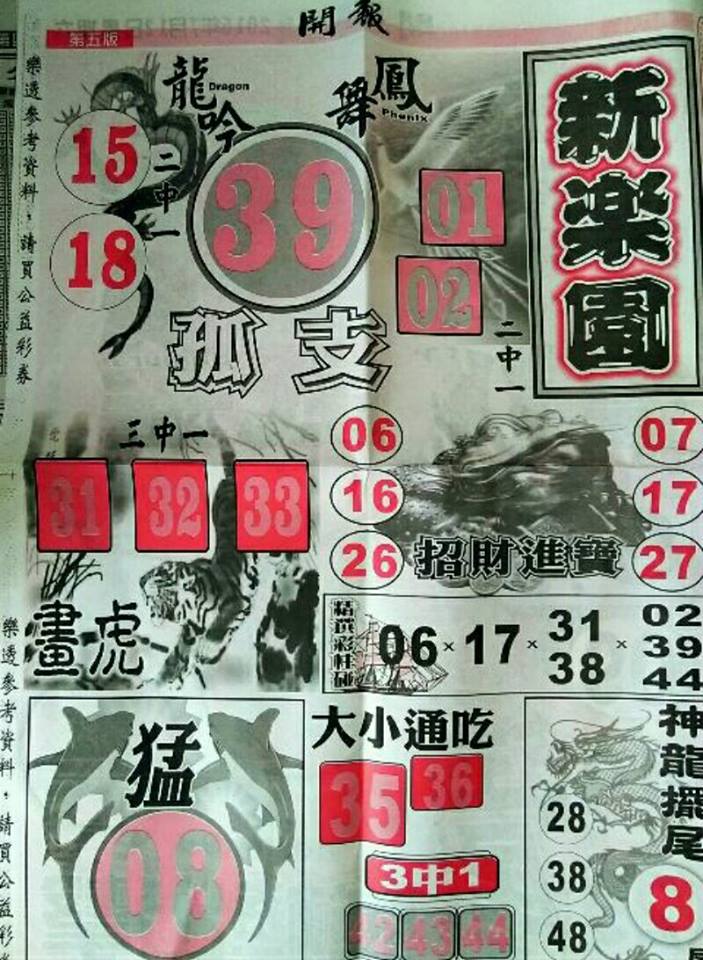 開報
第五版
樂透參考資料，請買公益彩券
龍吟
Dragon
鳳舞
Phenix
新楽園
15
18
二中一
39
01
02
二中一
孤支
三中一
31 32 33
畫虎
06
16
26
07
17
27
招財進寶
精選彩柱碰
06×17×31×02
38 39
44
樂透參考資料，請買公益彩
猛
08
大小通吃
35 36
3中1
42 43 44
神龍擺尾
28
38
48
8